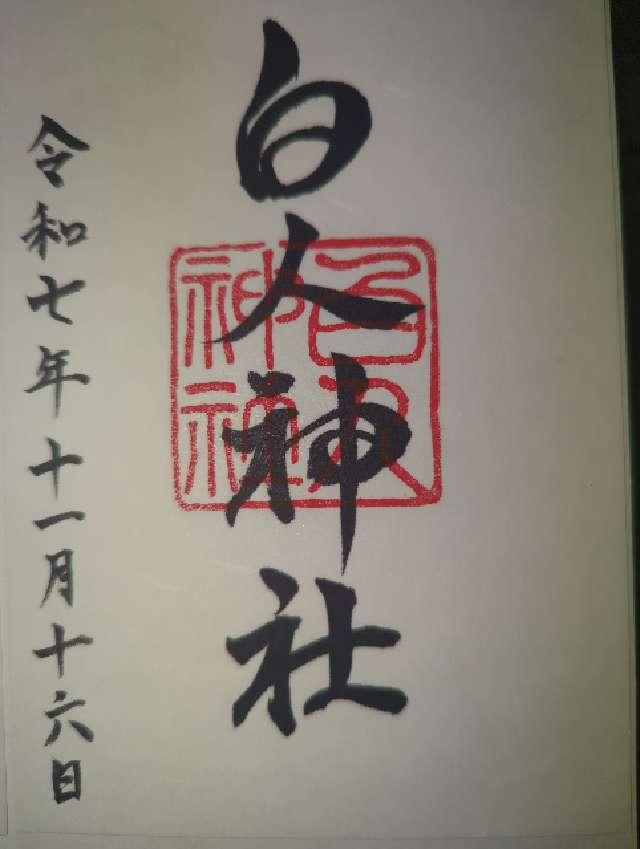 白人神社
白人神社
令和七年十一月十六日